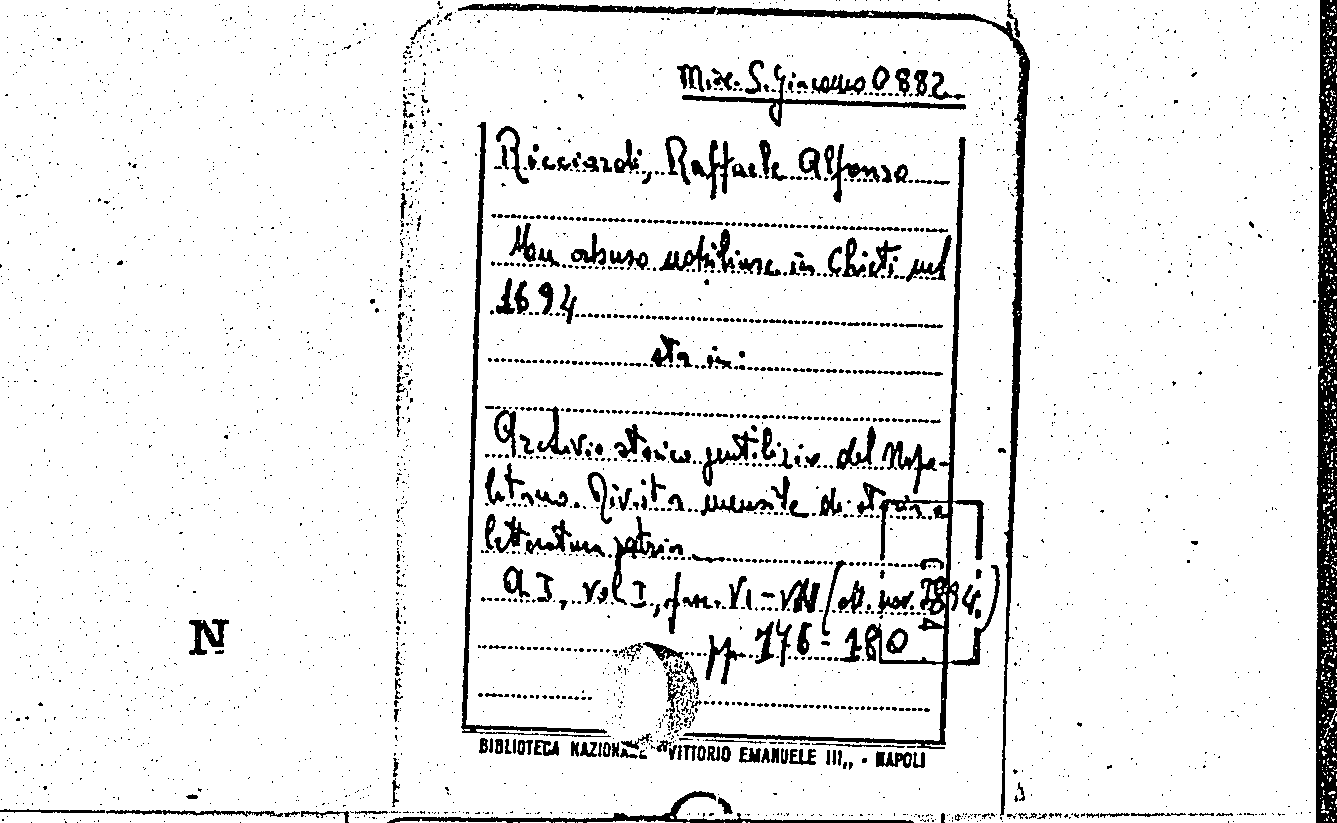 Misc. S. Giacomo 0882
Ricciardi, Raffaele Alfonso
Un abuso nobiliare in Chieti nel
1694
sta in:
Archivio storico gentilizio del Napo-
letano. Rivista mensile di storia e
letteratura patria
A I, vol I, fasc. VI-VII (ott. nov. 1894)
pp 176-180
N
BIBLIOTECA NAZIONALE "VITTORIO EMANUELE III„ - NAPOLI